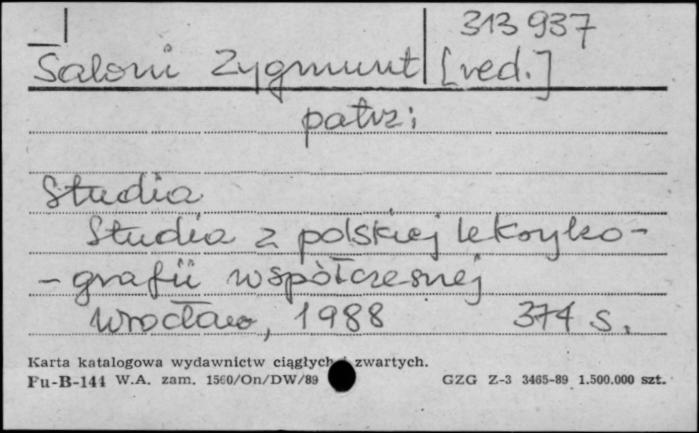 313937
Saloni Zygmunt [red.]
patrz:
Studia
Studia z polskiej leksyko-
-grafii współczesnej
Wrocław, 1988 374 s.
Karta katalogowa wydawnictw ciągłych i zwartych.
Fu-B-144 W.A. zam. 1560/On/DW/89 GZG Z-3 3465-89 1.500.000 szt.